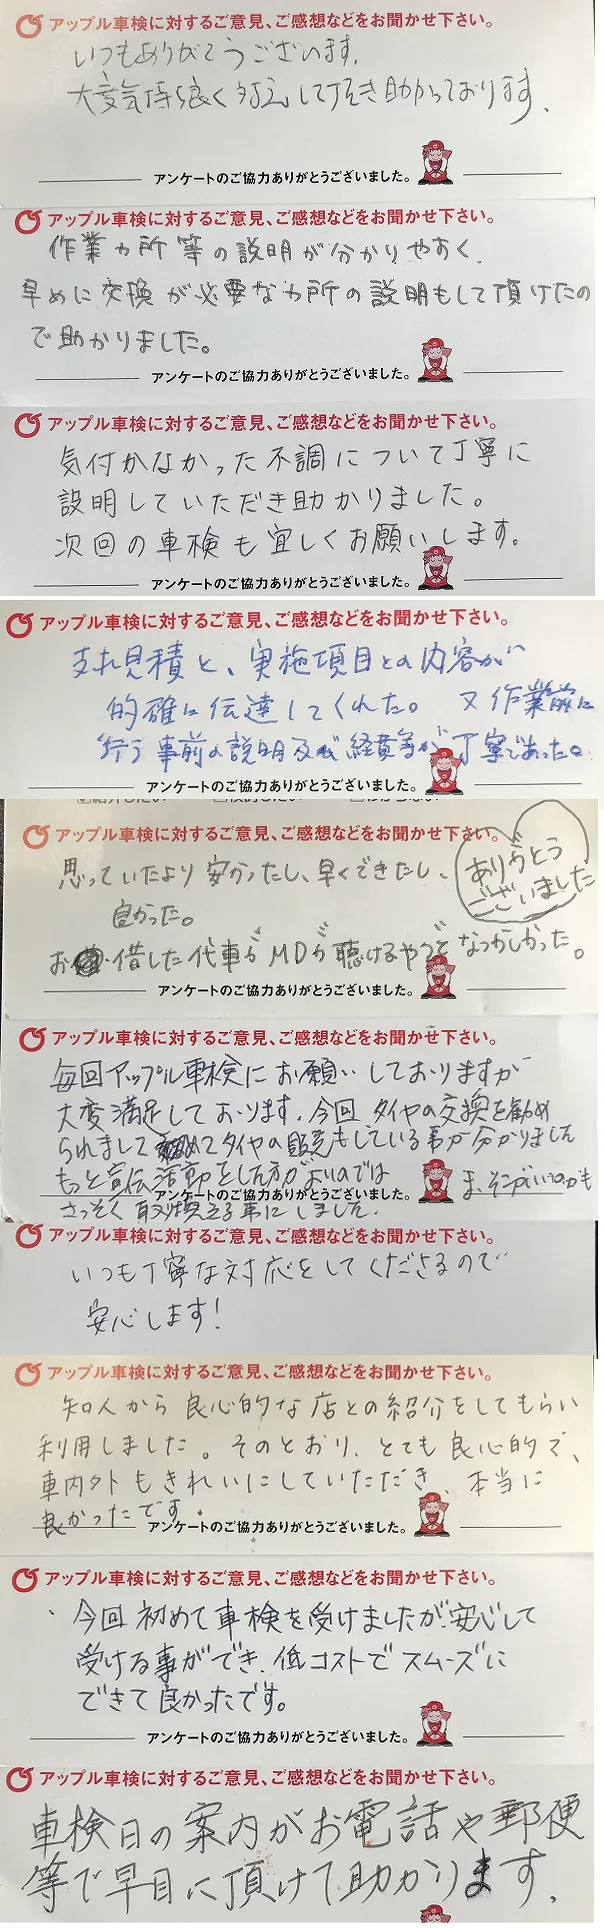 アップル車検に対するご意見、ご感想などをお聞かせ下さい。
いつもありがとうございます。
大変気持ち良く対応して頂き助かっております。
アンケートのご協力ありがとうございました。
アップル車検に対するご意見、ご感想などをお聞かせ下さい。
作業カ所等の説明が分かりやすく、
早めに交換が必要なカ所の説明もして頂けたの
で助かりました。
アンケートのご協力ありがとうございました。
アップル車検に対するご意見、ご感想などをお聞かせ下さい。
気付かなかった不調について丁寧に
説明していただき助かりました。
次回の車検も宜しくお願いします。
アンケートのご協力ありがとうございました。
アップル車検に対するご意見、ご感想などをお聞かせ下さい。
支払見積と、実施項目との内容が
的確に伝達してくれた。 又作業前に
行う事前の説明及び経費等が丁寧であった。
アンケートのご協力ありがとうございました。
アップル車検に対するご意見、ご感想などをお聞かせ下さい。
思っていたより安かったし、早くできたし、
良かった。
ありがとう
ございました
お借した代車がMDが聴けるやつでなつかしかった。
アンケートのご協力ありがとうございました。
アップル車検に対するご意見、ご感想などをお聞かせ下さい。
毎回アップル車検にお願いしておりますが
大変満足しております。今回タイヤの交換を勧め
られまして初めてタイヤの販売もしている事が分かりました
もっと宣伝活動をした方がよいのでは
ま、そこがいいのかも
アンケートのご協力ありがとうございました。
さっそく取り換える事にしました。
アップル車検に対するご意見、ご感想などをお聞かせ下さい。
いつも丁寧な対応をしてくださるので
安心します!
アップル車検に対するご意見、ご感想などをお聞かせ下さい。
知人から良心的な店との紹介をしてもらい
利用しました。そのとおり、とても良心的で、
車内外もきれいにしていただき、本当に
良かったです。
アンケートのご協力ありがとうございました。
アップル車検に対するご意見、ご感想などをお聞かせ下さい。
今回初めて車検を受けましたが、安心して
受ける事ができ、低コストでスムーズに
できて良かったです。
アンケートのご協力ありがとうございました。
アップル車検に対するご意見、ご感想などをお聞かせ下さい。
車検日の案内がお電話や郵便
等で早目に頂けて助かります。